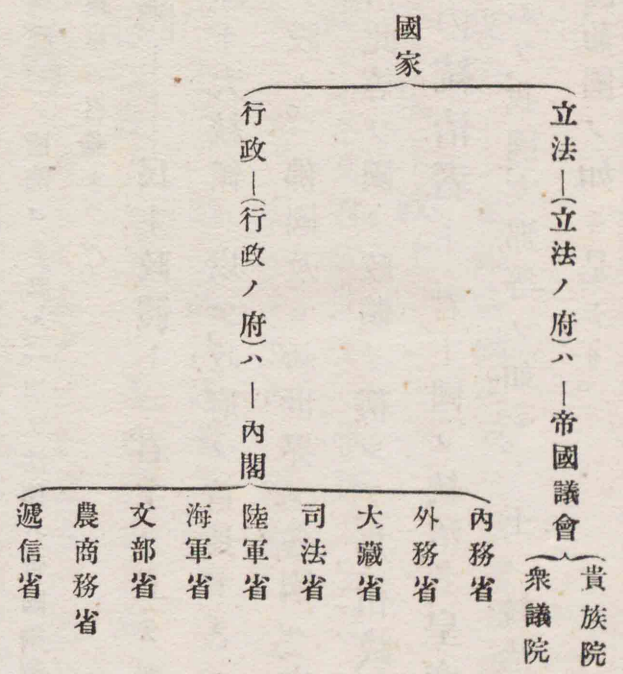 國家
立法―(立法ノ府)ハ―帝國議會
貴族院
衆議院
行政―(行政ノ府)ハ―內閣
內務省
外務省
大藏省
司法省
陸軍省
海軍省
文部省
農商務省
遞信省